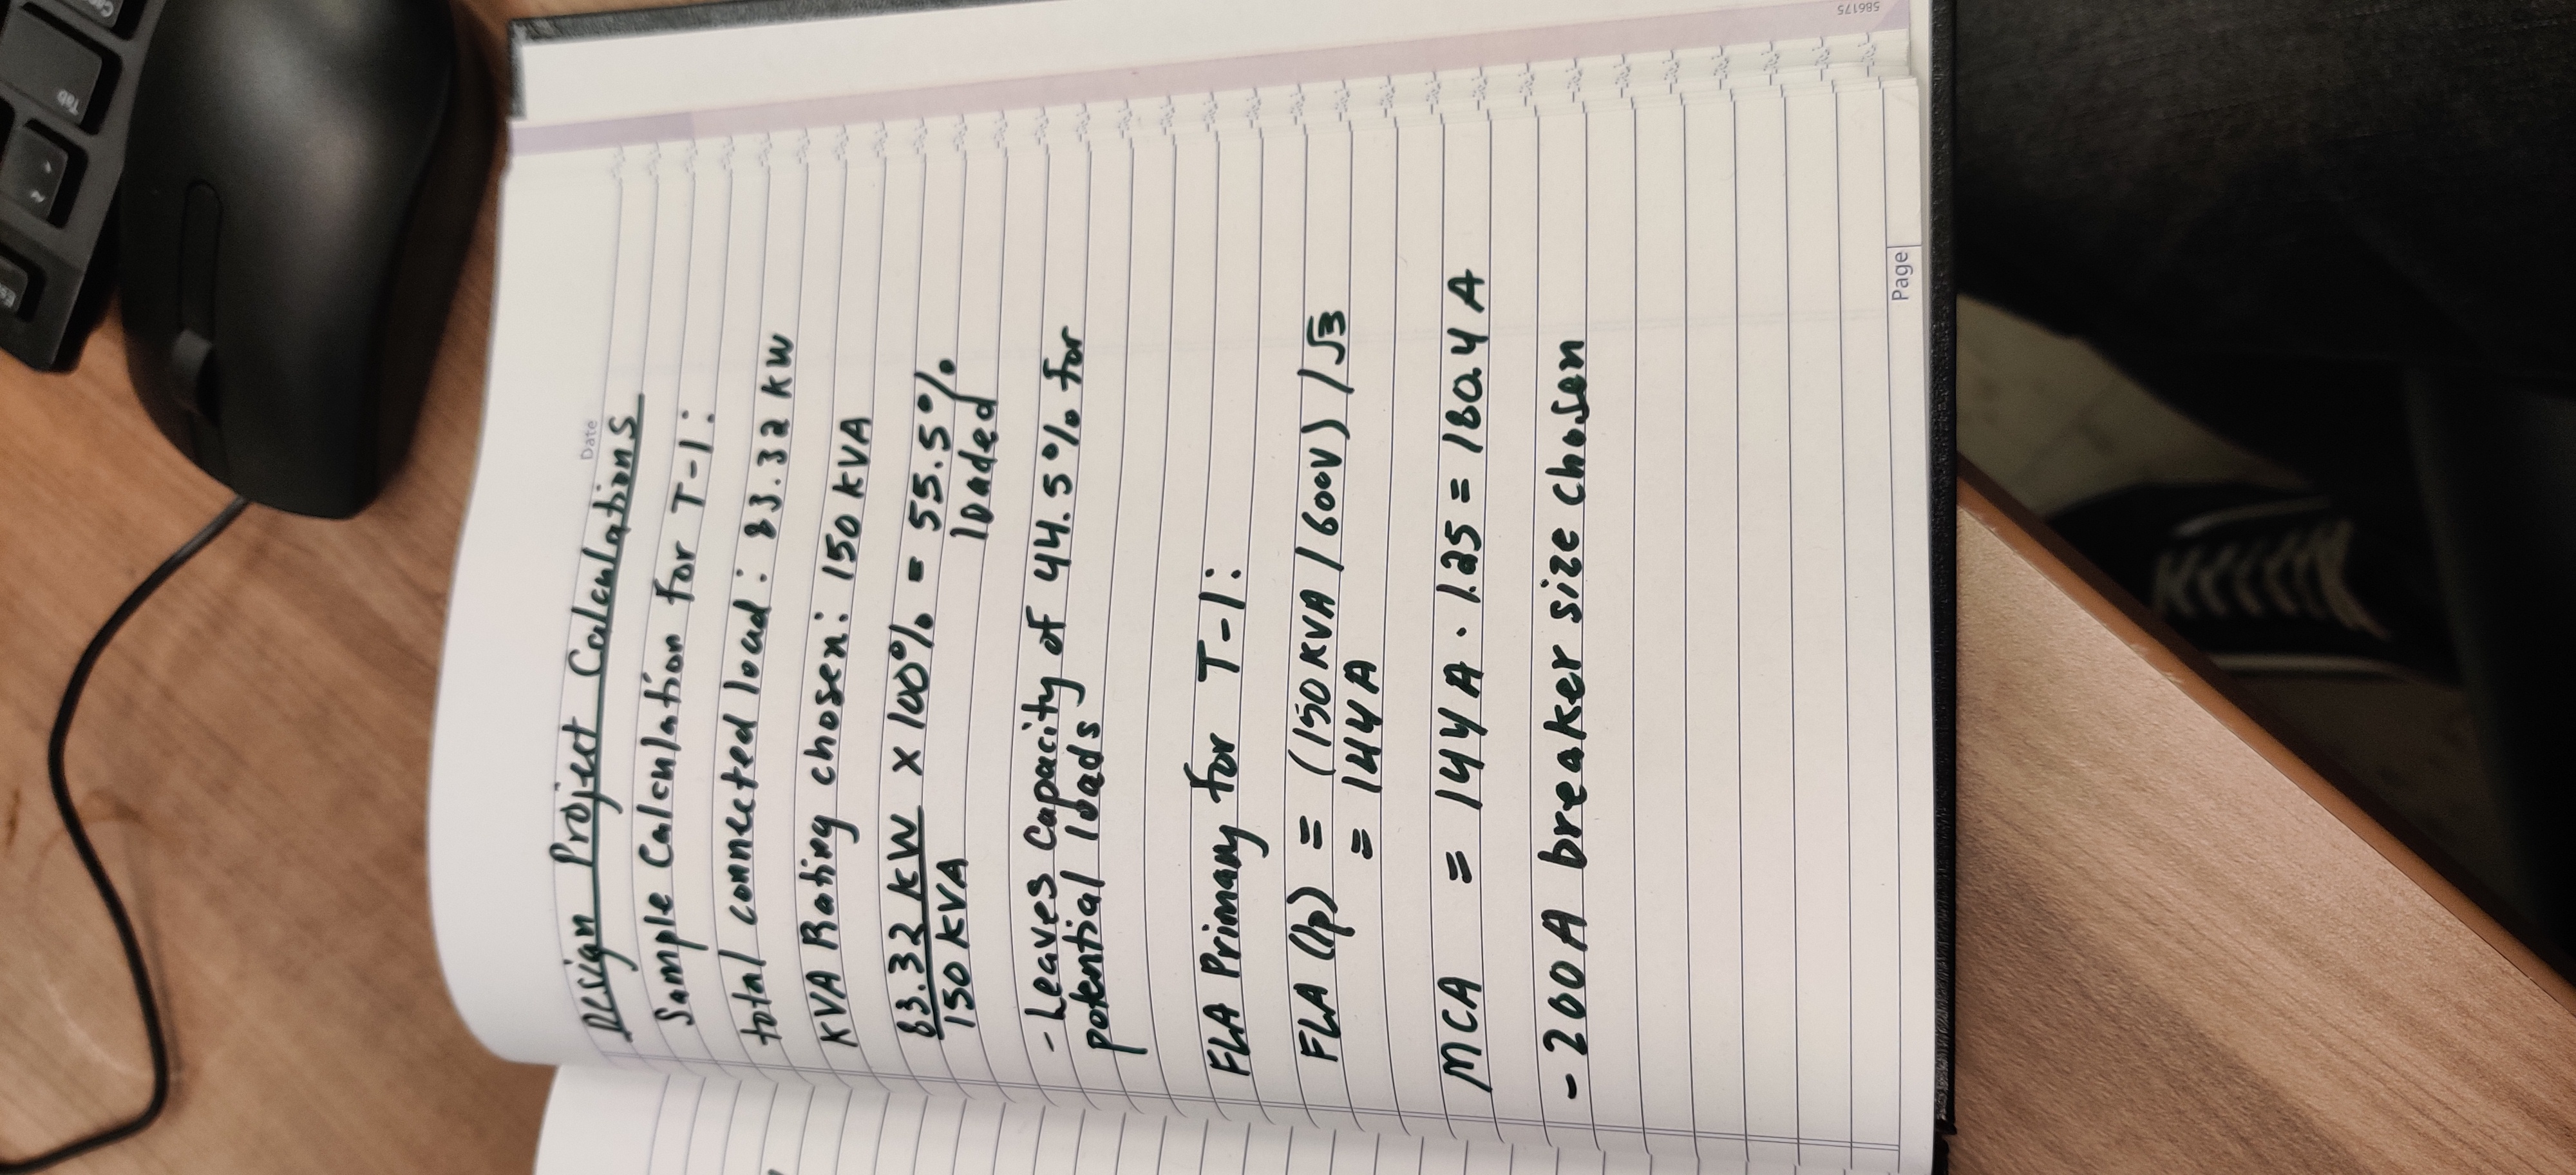 Esc
Tab
Date
Design Project Calculations
Sample Calculation for T-1:
total connected load: 83.32 KW
KVA Rating chosen: 150 KVA
83.32 KW x 100% = 55.5%
150 KVA loaded
- Leaves Capacity of 44.5% for
potential loads
FLA Primary for T-1:
FLA (Ip) = (150 KVA / 600V) / √3
= 144A
MCA = 144 A · 1.25 = 180.4 A
- 200A breaker size chosen
Page
586175